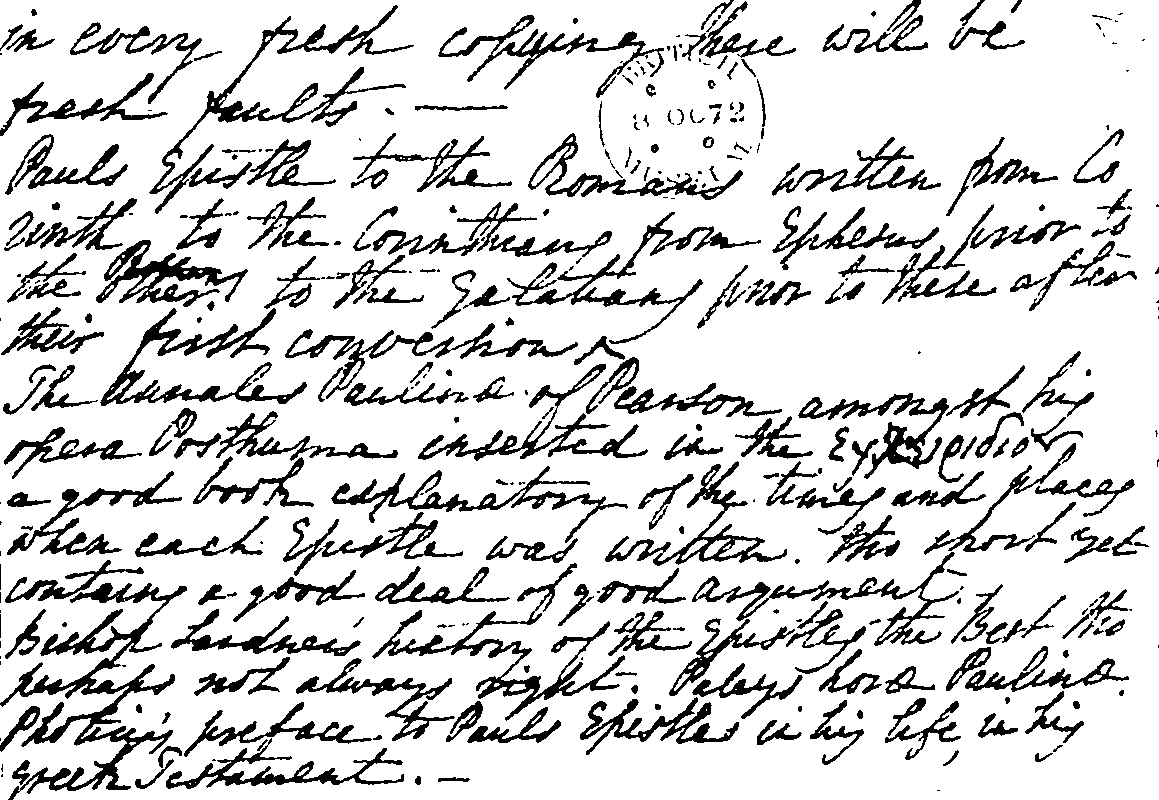 in every fresh copying there will be
fresh faults. —
BRITISH
8 OC 72
MUSEUM
Pauls Epistle to the Romans written from Co
rinth to the Corinthians from Ephesus, prior to
the other, to the Galatians prior to these after
their first conversion
The Annales Paulinæ of Pearson amongst his
opera Posthuma inserted in the
a good book explanatory of the times and places
when each Epistle was written. tho short yet
contains a good deal of good argument.
Bishop Lardner's history of the Epistles the Best tho
perhaps not always right. Paleys horæ Paulinæ.
preface to Pauls Epistles in his life, in his
greek Testament. —